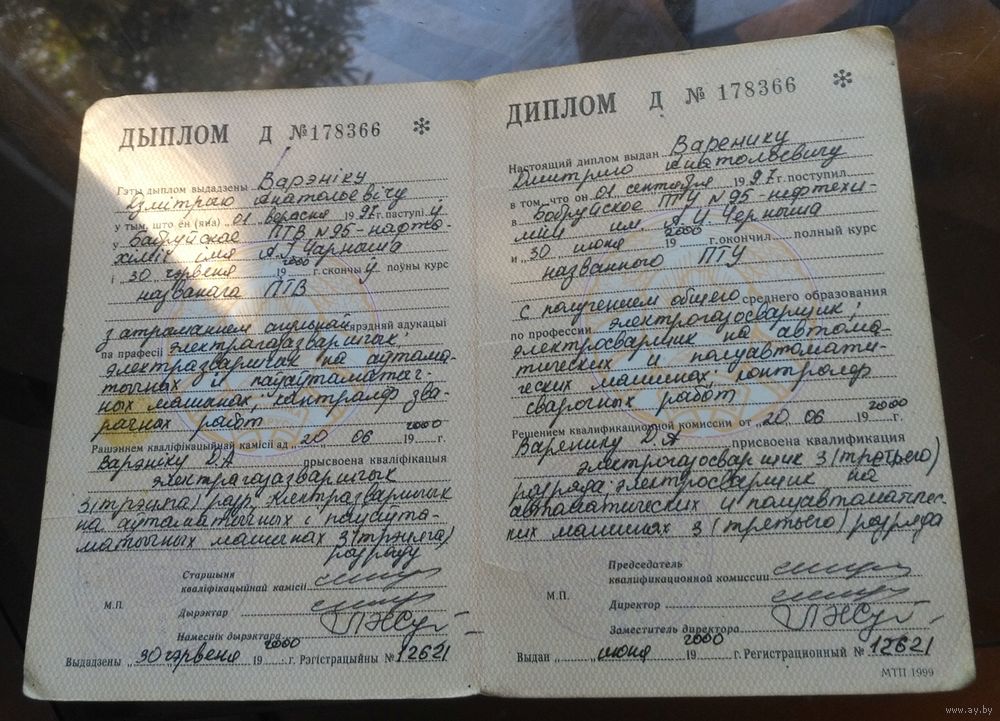 ДЫПЛОМ Д №178366 *
Гэты дыплом выдадзены Варэніку
Дзмітрыю Анатольевічу
у тым, што ён (яна) 01 верасня 1997г. паступіў
у Бабруйскае ПТВ №95-нафта-
хімік імя А.І Чэрныша
і 30 чэрвеня 2000 19 г. скончыў поўны курс
названага ПТВ
з атрыманнем агульнай сярэдняй адукацыі
па прафесіі электрагазазваршчык;
электразваршчык на аўтома-
тычных и паўаўтаматыч-
ных машынах; кантралёр зва-
рачных работ
Рашэннем кваліфікацыйнай камісіі ад „20 06 2000 19 г.
Варэніку Д.А прысвоена кваліфікацыя
электрагазазваршчык
3(трэцяга) разр, электразваршчык
на аўтаматычных і паўаўта-
матычных машынах 3(трэцяга)
разраду
Старшыня
кваліфікацыйнай камісіі
М.П. Дырэктар
Намеснік дырэктара
Выдадзены „30 чэрвеня 2000 19 г. Рэгістрацыйны №12621
ДИПЛОМ Д № 178366 *
Настоящий диплом выдан Варенику
Дмитрию Анатольевичу
в том, что он 01 сентября 1997г. поступил
в Бобруйское ПТУ №95-нефтехи-
мик им. А И Черныша
и 30 июня 2000 19 г. окончил полный курс
названного ПТУ
с получением общего среднего образования
по профессии электрогазосварщик;
электросварщик на автома-
тических и полуавтомати-
ческих машинах; контролер
сварочных работ
Решением квалификационной комиссии от „20 06 2000 19 г.
Варенику Д.А присвоена квалификация
электрогазосварщик 3(третьего)
разряда, электросварщик на
автоматических и полуавтоматичес-
ких машинах 3(третьего) разряда
Председатель
квалификационной комиссии
М.П. Директор
Заместитель директора
Выдан „ июня 2000 19 г. Регистрационный № 12621
МТП 1999
www.ay.by